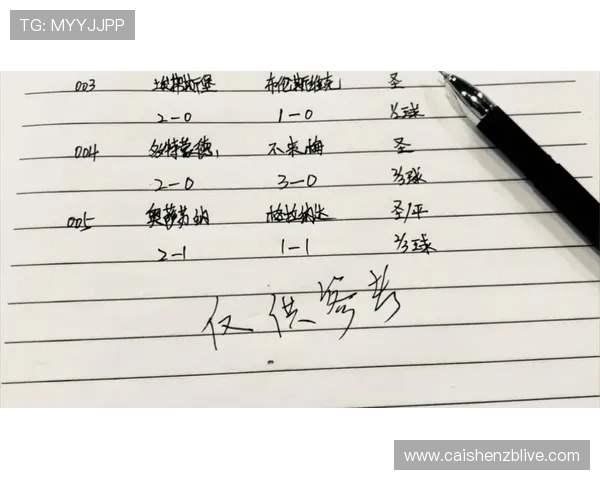 TG: MYYJJPP
003 埃弗斯堡 布伦斯维克 圣
2-0 1-0 ⅓球
004 多特蒙德, 不来梅 圣
2-0 3-0 ⅔球
005 奥萨苏纳 格拉纳达 圣/平
2-1 1-1 ⅔球
仅供参考
www.caishenzblive.com